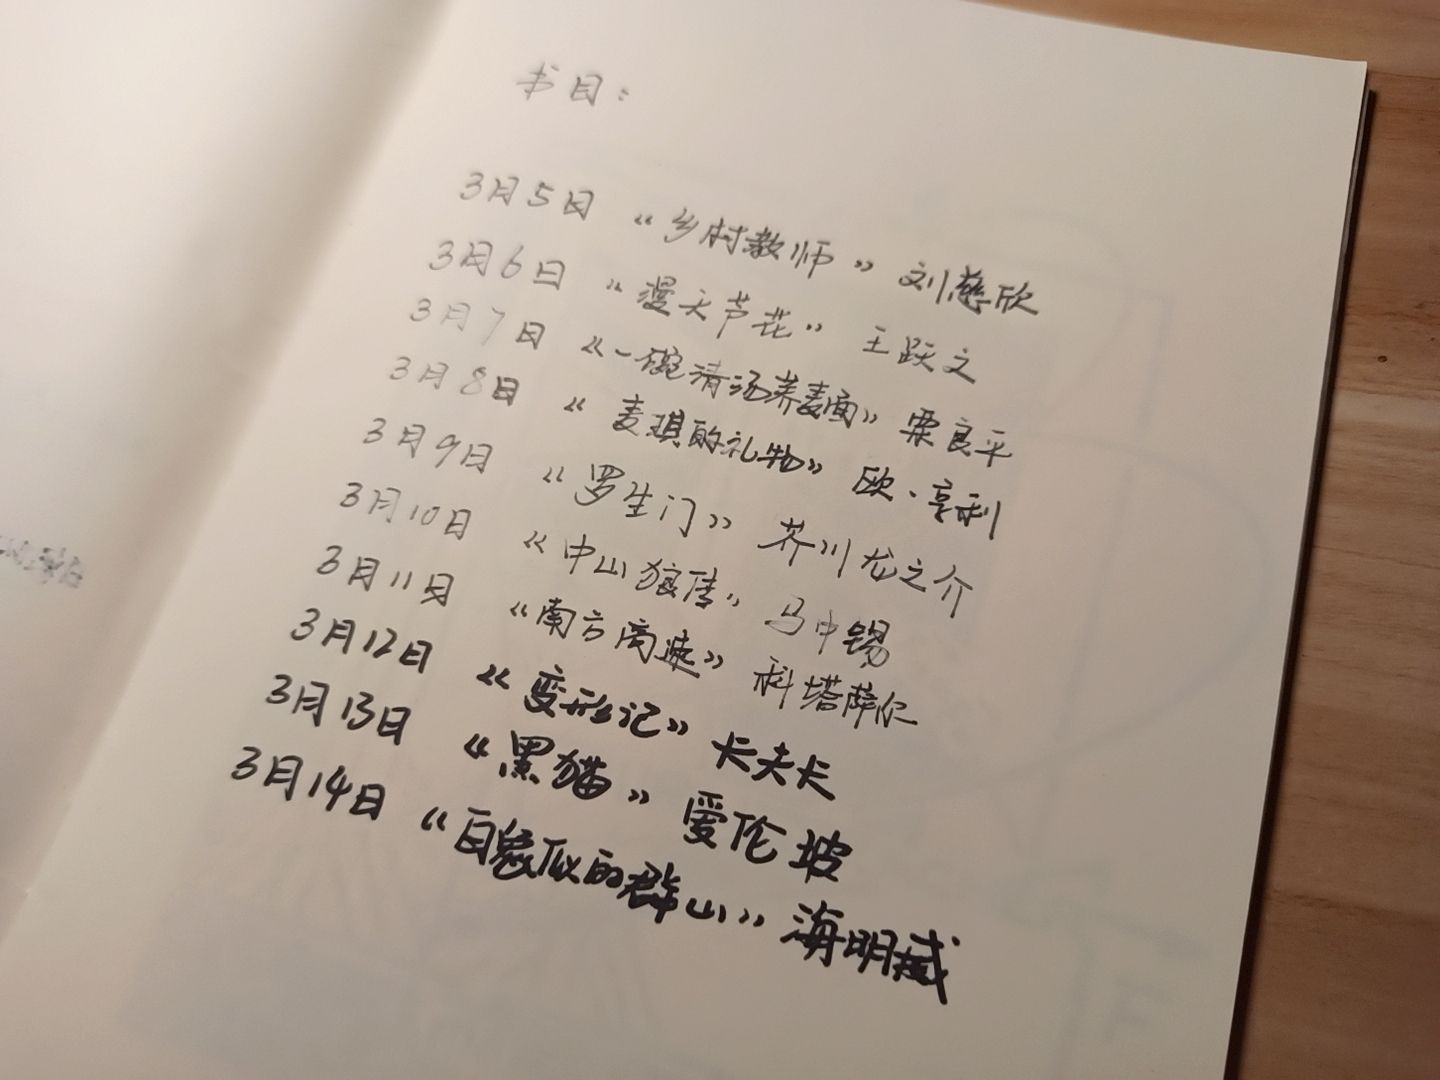 书目：
3月5日 《乡村教师》 刘慈欣
3月6日 《漫天芦花》 王跃文
3月7日 《一碗清汤荞麦面》 栗良平
3月8日 《麦琪的礼物》 欧·亨利
3月9日 《罗生门》 芥川龙之介
3月10日 《中山狼传》 马中锡
3月11日 《南方高速》 科塔萨尔
3月12日 《变形记》 卡夫卡
3月13日 《黑猫》 爱伦坡
3月14日 《白象似的群山》 海明威